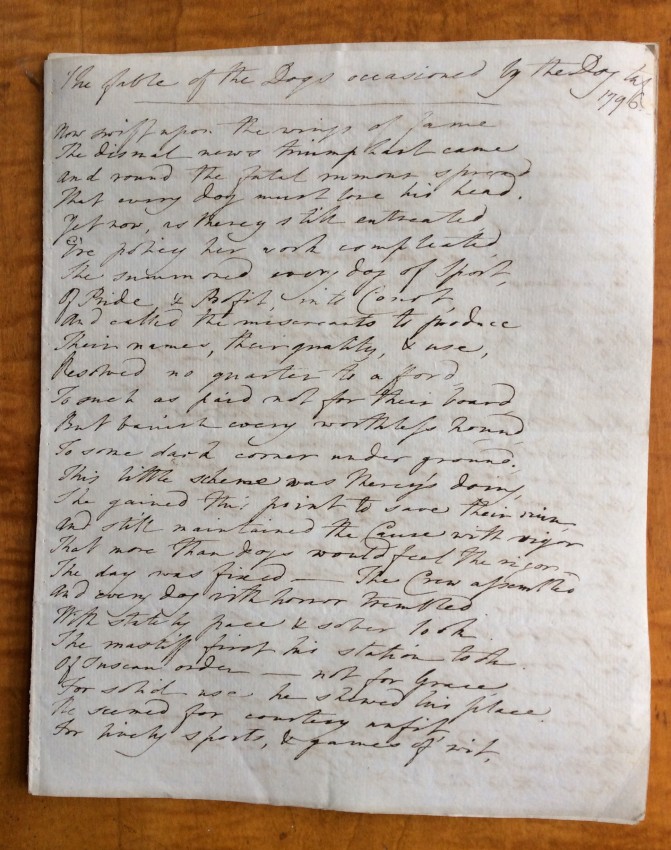 The fable of the Dogs occasioned by the Dog tax
1796.
Now swift upon the wings of fame
The dismal news triumphant came
And round the fatal rumour spread
That every dog must lose his head.
Yet now, as Mercy still entreated
E're policy her work compleated,
She summoned every dog of Sport,
Of Pride & Profit, into Court,
And called the miscreants to produce
Their names, their quality, & use,
Resolved no quarter to afford
To such as paid not for their board
But banish every worthless hound
To some dark corner under ground.
This little scheme was Mercy's doing,
She gained this point to save their ruin
And still maintained the Cause with vigor
That more than dogs would feel the rigor —
The day was fixed — The Crew assembled
And every dog with horror trembled
With stately pace & sober look
The mastiff first his station took
Of Tuscan order — not for Grace,
For solid use he shewed his place.
He seemed for courtesy unfit,
For lively sports, & games of wit,